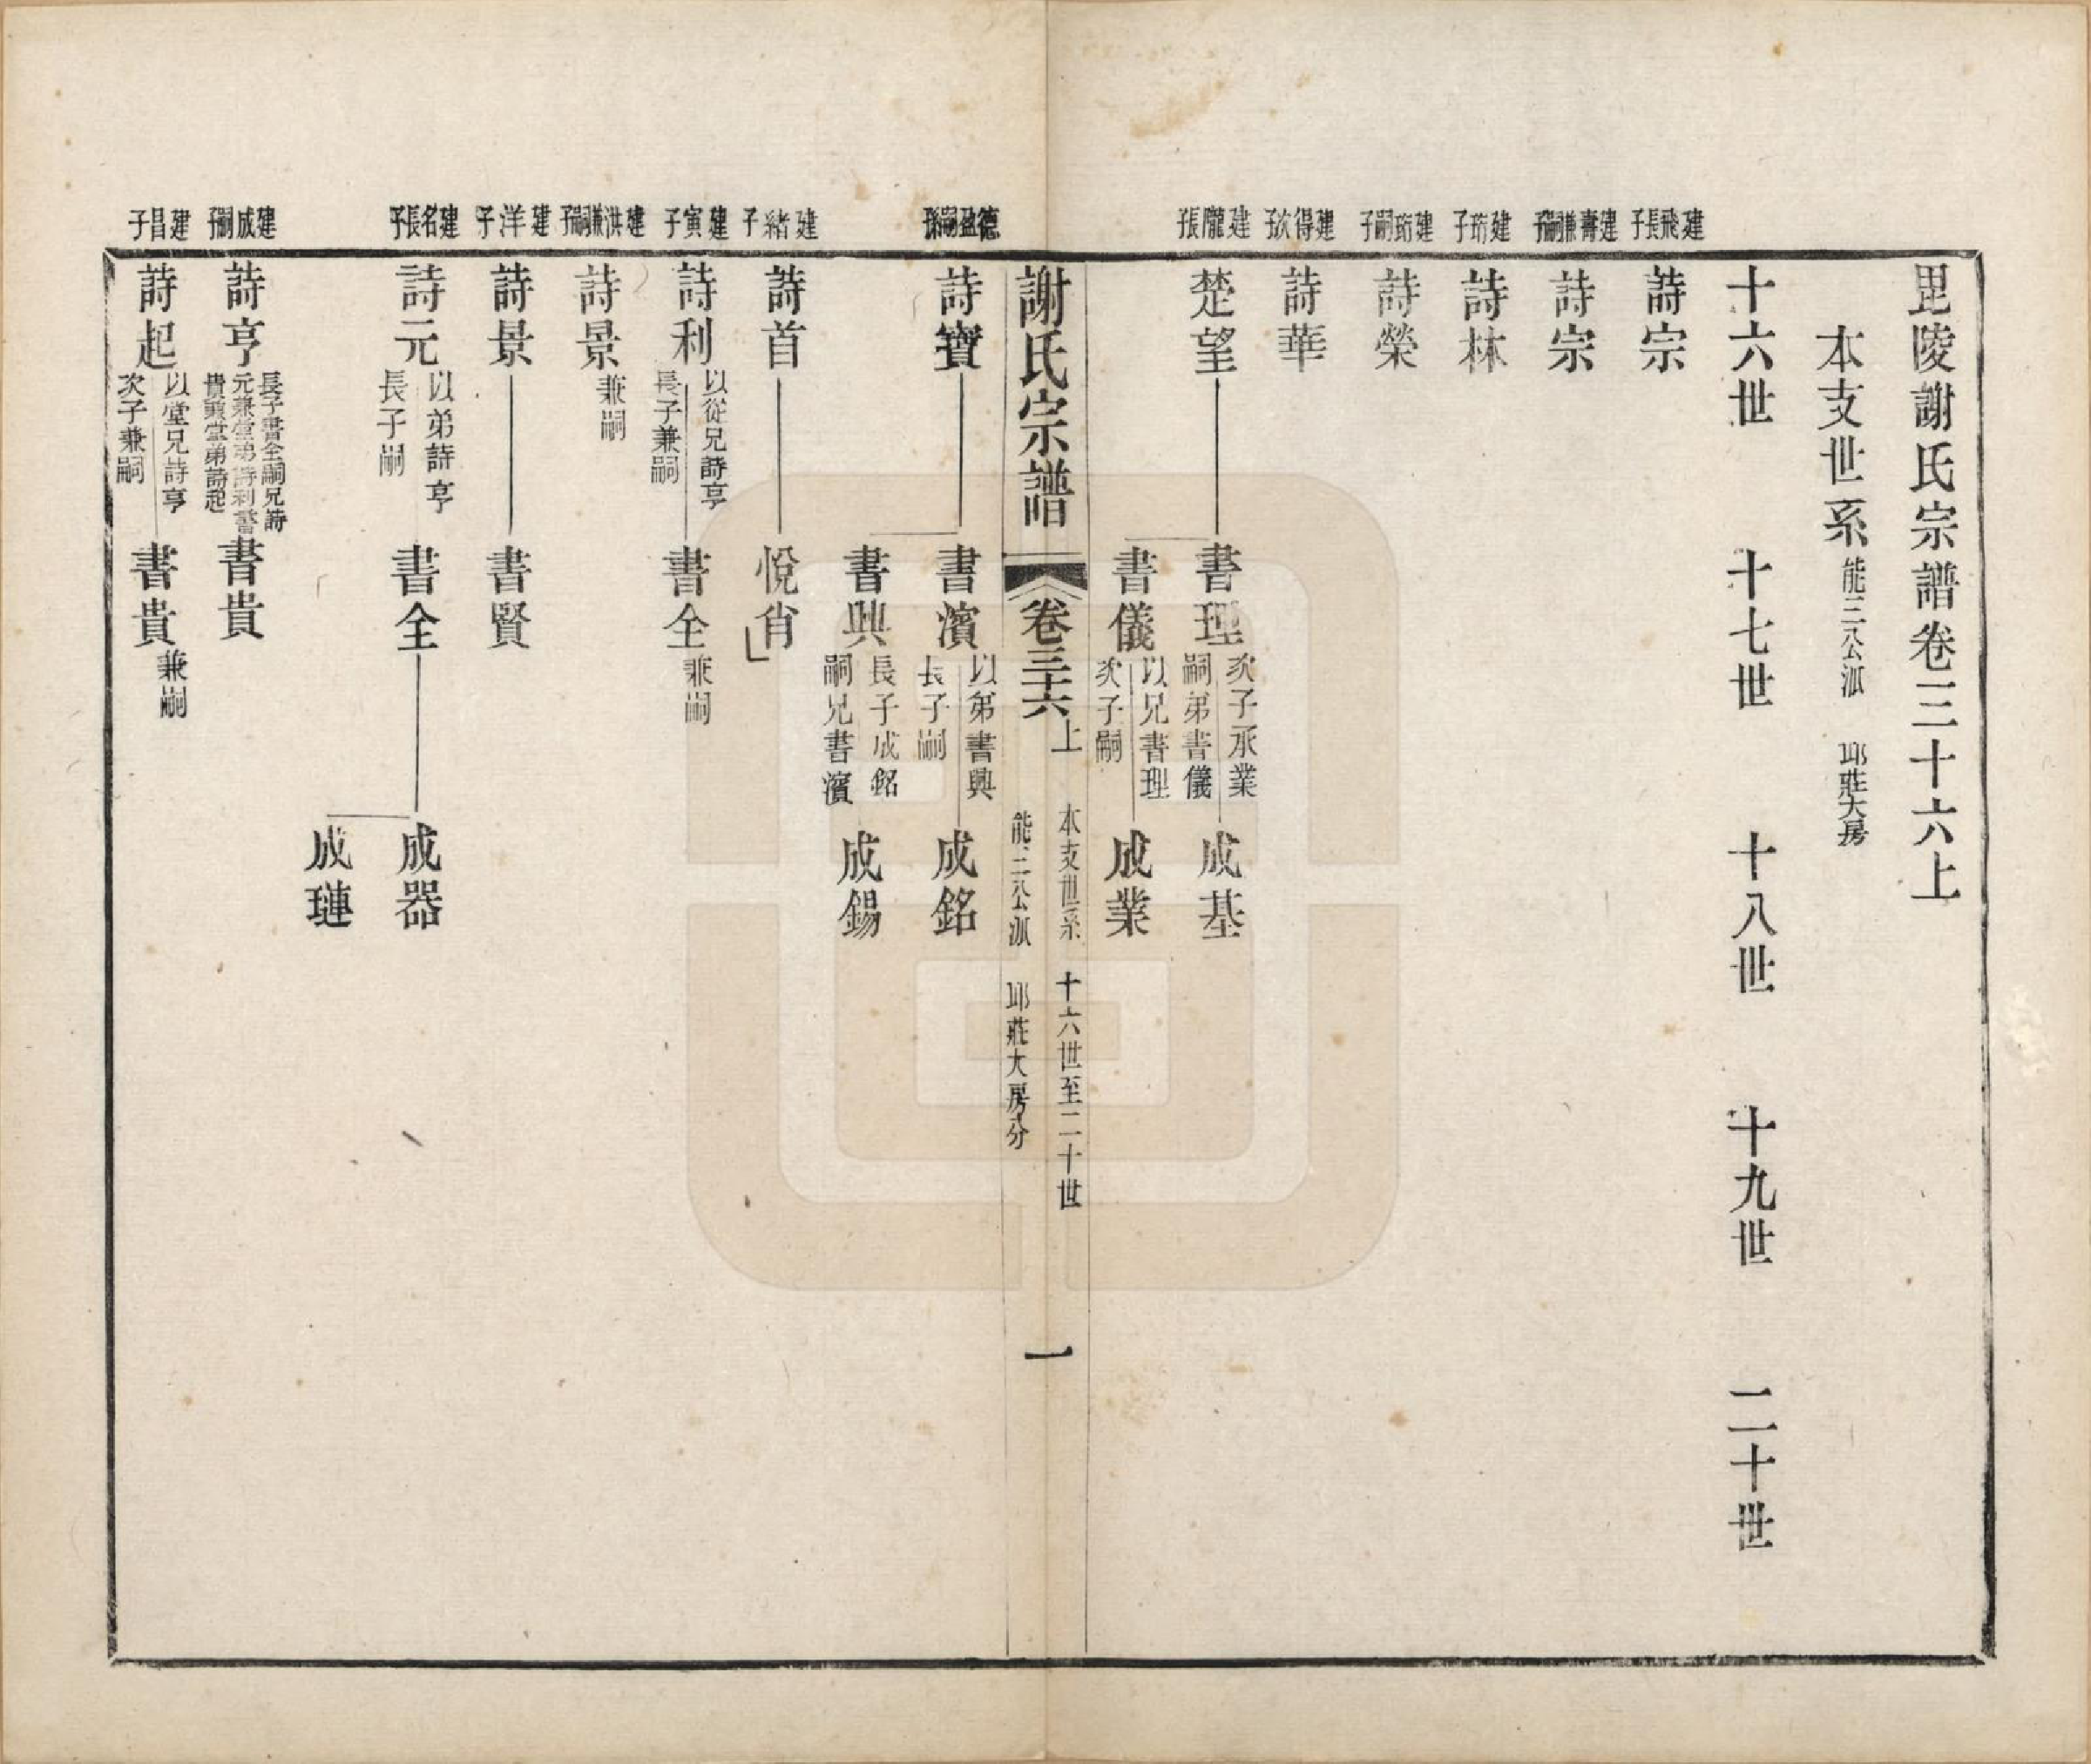 毘陵謝氏宗譜卷三十六上
本支世系能三公派 邱莊大房
十六世 十七世 十八世 十九世 二十世
建飛長子
詩宗
建壽兼嗣子
詩宗
建珩子
詩林
建珩嗣子
詩榮
建得次子
詩華
建龐長子
楚望
書理
次子承業
嗣弟書儀
成基
書儀
以兄書理
次子嗣
成業
謝氏宗譜
卷三十六上
本支世系 十六世至二十世
能三公派 邱莊大房分
一
德盈嗣孫
詩寶
書濱
以弟書興
長子嗣
成銘
書興
長子成銘
嗣兄書濱
成錫
建緒子
詩首
悅肖
建寅子
詩利
以從兄詩亨
長子兼嗣
書全兼嗣
建洪兼嗣子
詩景兼嗣
建洋子
詩景
書賢
建名長子
詩元
以弟詩亨
長子嗣
書全
成器
成璉
建成嗣子
詩亨
長子書全嗣兄詩
元兼堂弟詩利書
貴兼堂弟詩起
書貴
建昌子
詩起
以堂兄詩亨
次子兼嗣
書貴兼嗣